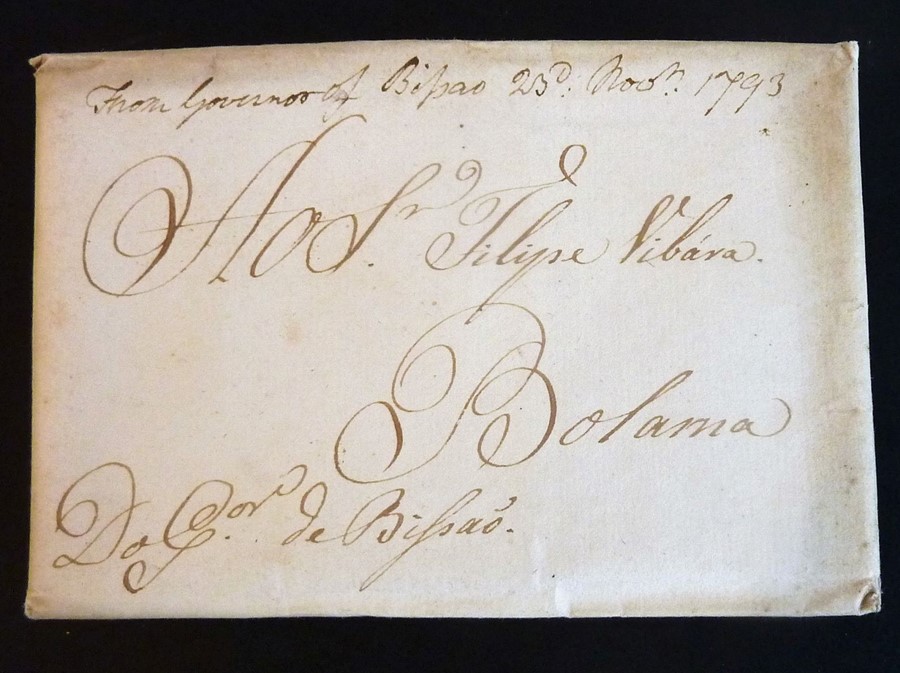 From Governor of Bissao 23d. Novr. 1793
Ao Sr. Filipe Vibára.
Bolama
Do Gor. de Bissáo.